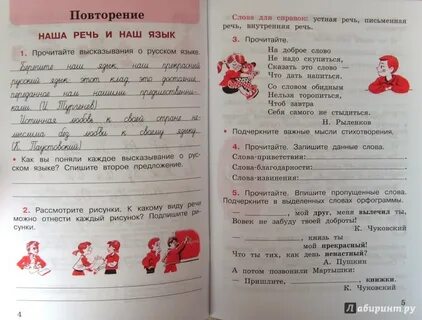 Повторение
НАША РЕЧЬ И НАШ ЯЗЫК
1. Прочитайте высказывания о русском языке.
Берегите наш язык, наш прекрасный
русский язык, этот клад, это достояние,
переданное нам нашими предшественни-
ками. (И. Тургенев)
Истинная любовь к своей стране не-
мыслима без любви к своему языку.
(К. Паустовский)
• Как вы поняли каждое высказывание о рус-
ском языке? Спишите второе предложение.
2. Рассмотрите рисунки. К какому виду речи
можно отнести каждый рисунок? Подпишите ри-
сунки.
4
Слова для справок: устная речь, письменная
речь, внутренняя речь.
3. Прочитайте.
На доброе слово
Не надо скупиться,
Сказать это слово —
Что дать напиться.
Со словом обидным
Нельзя торопиться,
Чтоб завтра
Себя самого не стыдиться.
Н. Рыленков
• Подчеркните важные мысли стихотворения.
4. Прочитайте. Запишите данные слова.
Слова-приветствия:
Слова-благодарности:
Слова-извинения:
5. Прочитайте. Впишите пропущенные слова.
Подчеркните в выделенных словах орфограммы.
, мой друг, меня вылечил ты,
Вовек не забуду твоей доброты!
К. Чуковский
, князь ты
мой прекрасный!
Что ты тих, как день ненастный?
А. Пушкин
А потом позвонили Мартышки:
— Пришлите, , книжки.
К. Чуковский
5
Лабиринт.ру